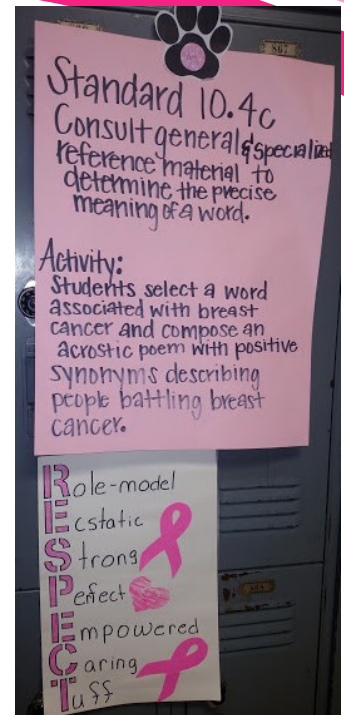 867
Standard 10.4c
Consult general & specialized
reference material to
determine the precise
meaning of a word.
Activity:
Students select a word
associated with breast
cancer and compose an
acrostic poem with positive
synonyms describing
people battling breast
cancer.
Role-model
Ecstatic
Strong
Perfect
Empowered
Caring
Tuff